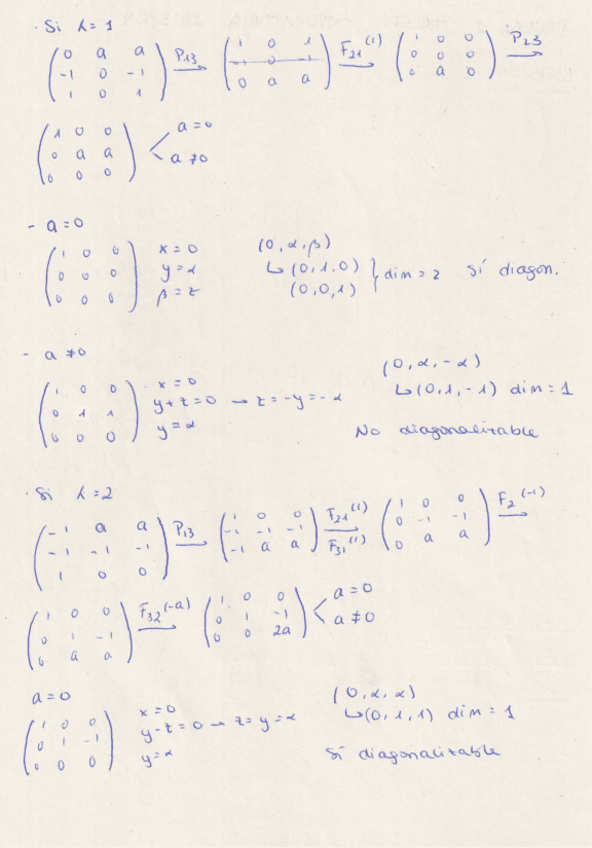 · Si λ=1
( 0 a a ; -1 0 -1 ; 1 0 1 ) P13→ ( 1 0 1 ; -1 0 -1 ; 0 a a ) F21(1)→ ( 1 0 0 ; 0 0 0 ; 0 a 0 ) P23→
( 1 0 0 ; 0 a a ; 0 0 0 ) < a=0
a≠0
- a=0
( 1 0 0 ; 0 0 0 ; 0 0 0 ) x=0 y=α β=z (0,α,β) ↳(0,1,0) (0,0,1) } dim=2 Sí diagon.
- a≠0
( 1 0 0 ; 0 1 1 ; 0 0 0 ) x=0 y+z=0 → z=-y=-α y=α (0,α,-α) ↳(0,1,-1) dim=1
No diagonalizable
· Si λ=2
( -1 a a ; -1 -1 -1 ; 1 0 0 ) P13→ ( 1 0 0 ; -1 -1 -1 ; -1 a a ) F21(1) F31(1)→ ( 1 0 0 ; 0 -1 -1 ; 0 a a ) F2(-1)→
( 1 0 0 ; 0 1 -1 ; 0 a a ) F32(-a)→ ( 1 0 0 ; 0 1 -1 ; 0 0 2a ) < a=0
a≠0
a=0
( 1 0 0 ; 0 1 -1 ; 0 0 0 ) x=0 y-z=0 → z=y=α y=α (0,α,α) ↳(0,1,1) dim=1
Sí diagonalizable